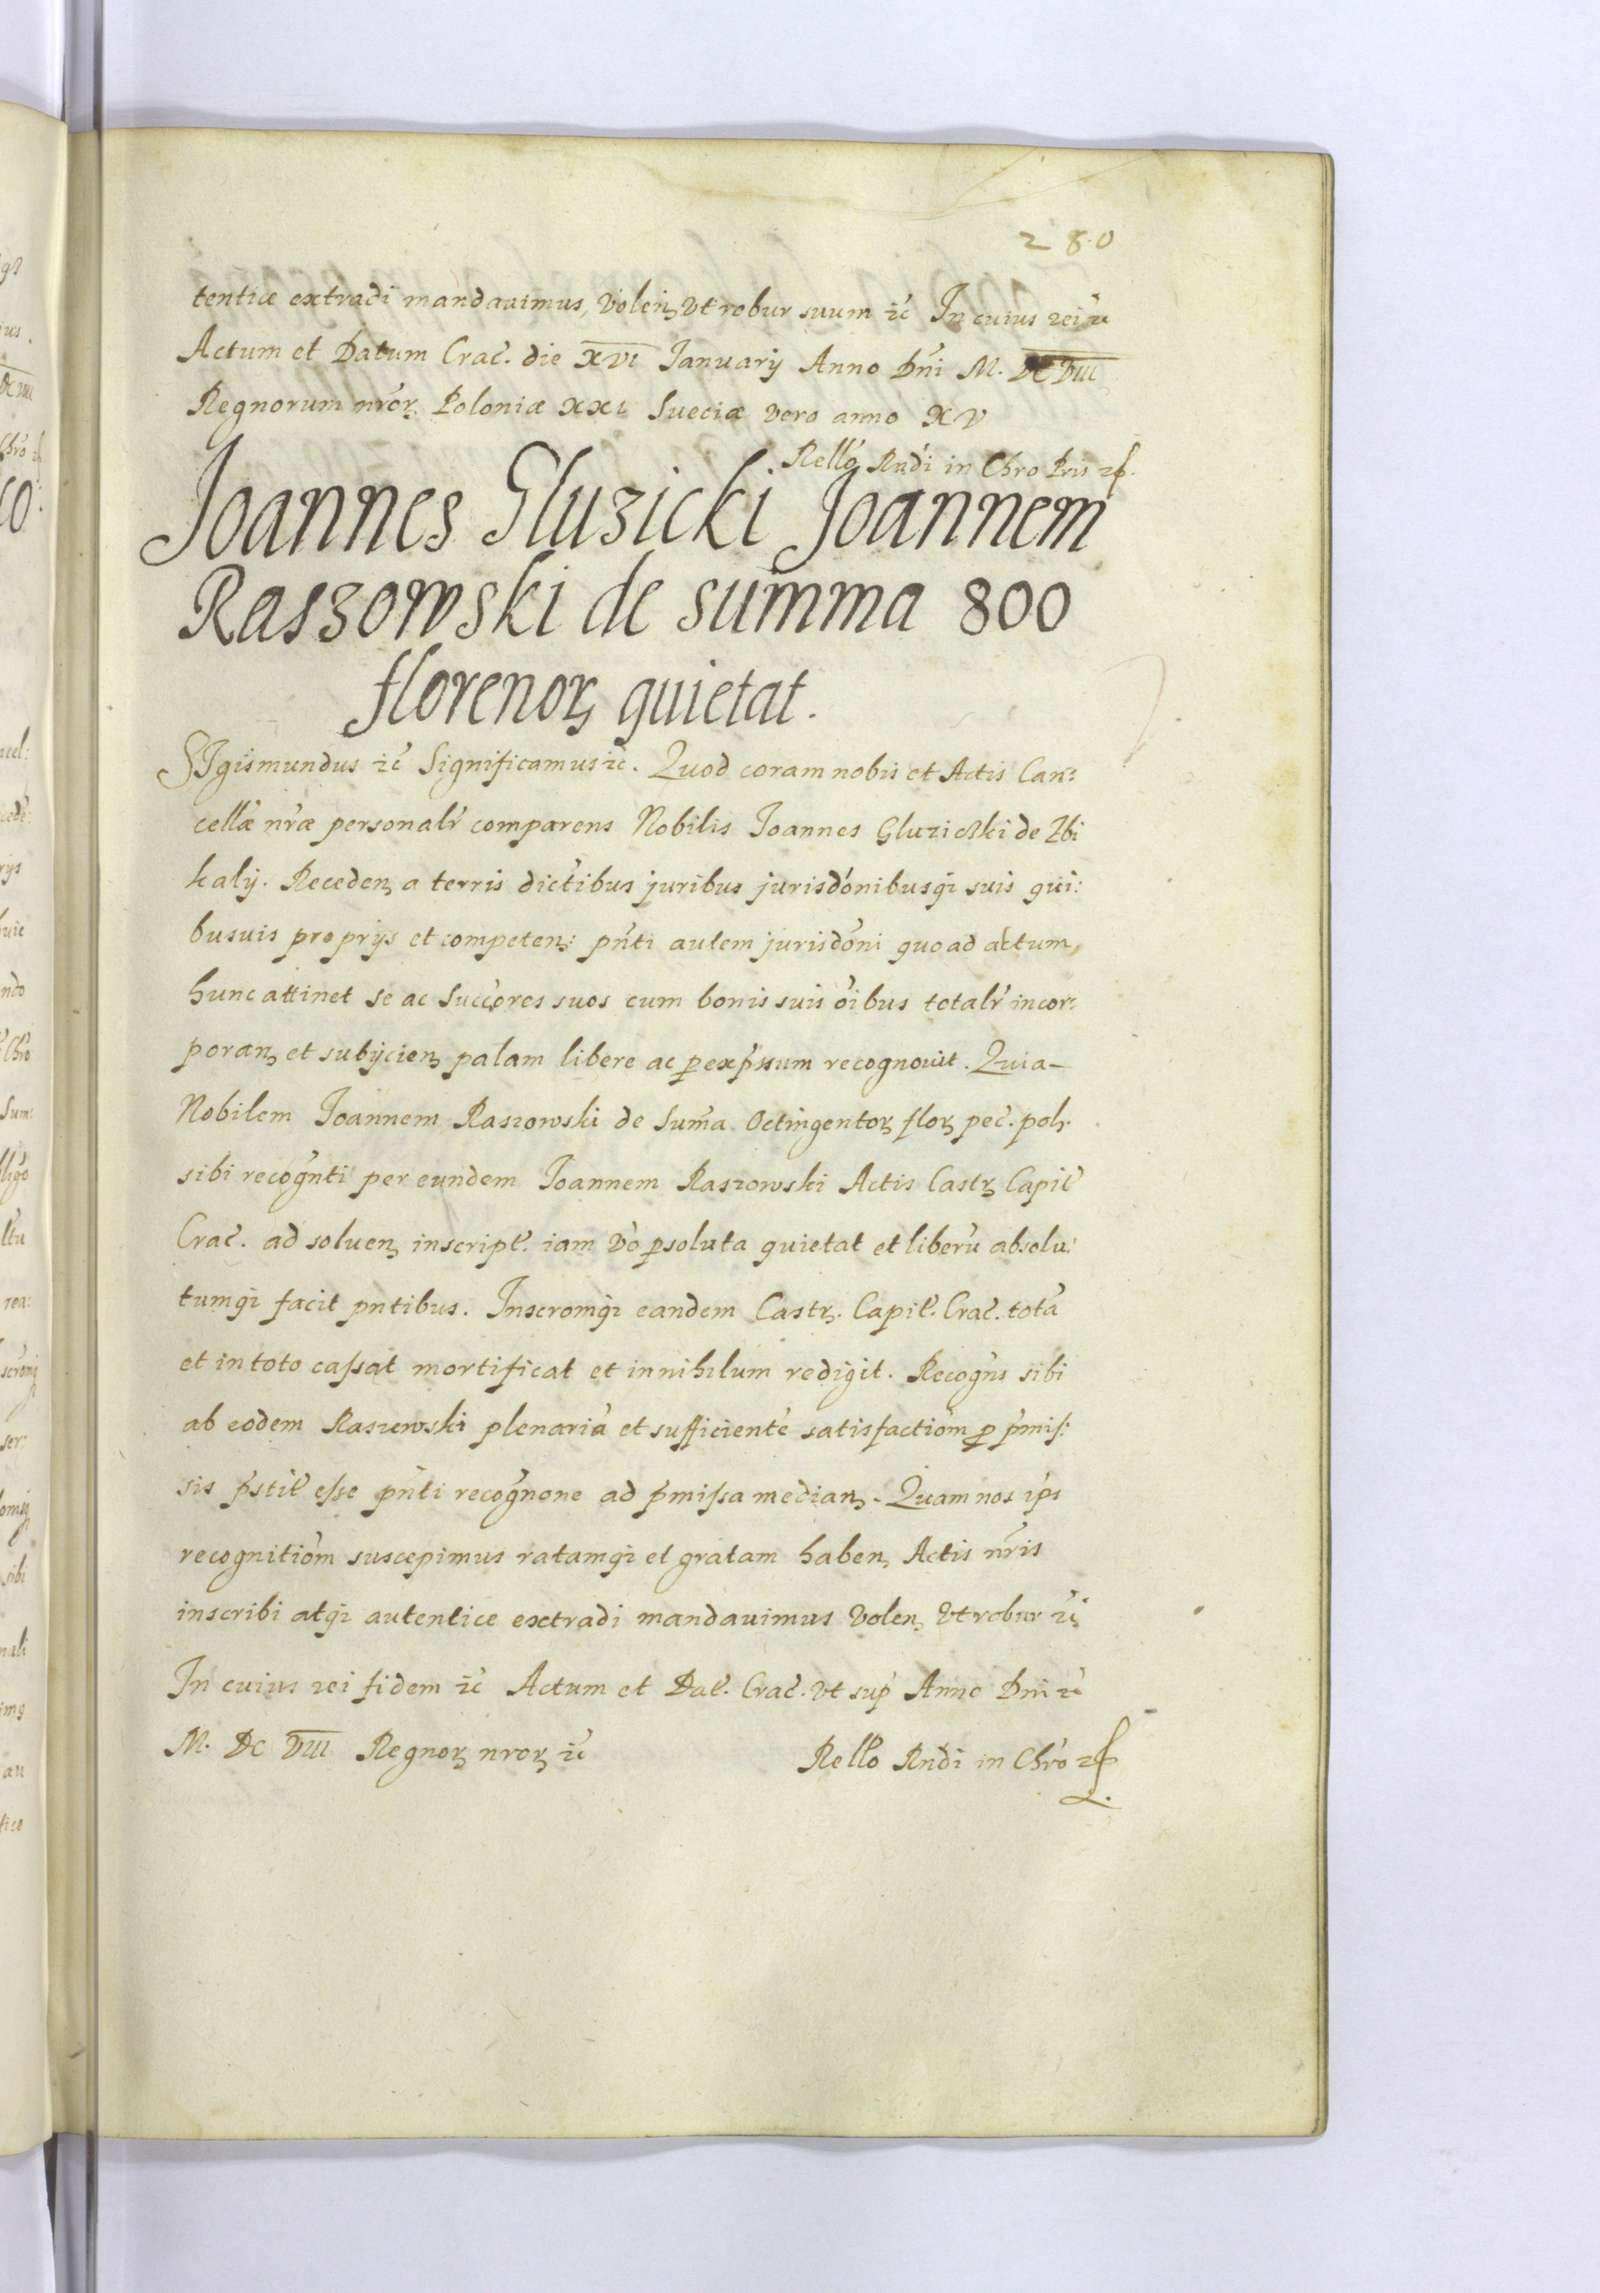 280
tentice extradi mandauimus, Volenꝫ Vt robur suum ꝛc̃ In cuius rei ꝛc̃
Actum et Datum Crac̃. die XVI Ianuarij Anno Dn̄i M. DC DIII
Regnorum nr̃orꝫ Poloniæ XXI Sueciæ vero anno XV
Rello Rndi in Chro Pris ꝛc̃.
Joannes Gluzicki Joannem
Raszowski de summa 800
florenorꝫ quietat.
SIgismundus ꝛc̃ Significamus ꝛc̃. Quod coram nobis et Actis Can:
cellæ nr̃æ personalr̃ comparens Nobilis Joannes Gluzicki de Zbi
kalij. Recedenꝫ a terris dictibus juribus jurisdõnibusqꝫ suis qui:
busuis proprijs et competenꝫ: pñti autem jurisdõni quo ad actum,
hunc attinet se ac Succores suos cum bonis suis õibus totalr̃ incor:
poranꝫ et subijcienꝫ palam libere ac ꝑ expr̃ssum recognouit. Quia
Nobilem Joannem Raszowski de Sum̃a Octingentorꝫ florꝫ pec̃. polꝫ.
sibi recogñti per eundem Joannem Raszowski Actis Castrꝫ Capit̃
Crac̃. ad soluenꝫ inscript̃. iam võ ꝑsoluta quietat et liberũ absolu:
tumqꝫ facit pñtibus. Inscromqꝫ eandem Castrꝫ. Capit̃. Crac̃. totã
et in toto caſsat mortificat et in nihilum redigit. Recogñs sibi
ab eodem Raszewski plenariã et sufficientẽ satisfactiõm ꝓ p̃miſ:
sis p̃stit̃ eſse pñti recogñone ad p̃miſsa medianꝫ. Quam nos ip̃s
recognitiõm suscepimus ratamqꝫ et gratam habenꝫ Actis nr̃is
inscribi atqꝫ autentice extradi mandauimus Volenꝫ Vt robur ꝛc̃
In cuius rei fidem ꝛc̃ Actum et Dat̃. Crac̃. Vt sup̃ Anno Dni ꝛc̃
M. DC DIII Regnorꝫ nrorꝫ ꝛc̃
Rello Rndi in Chr̃o ꝛc̃